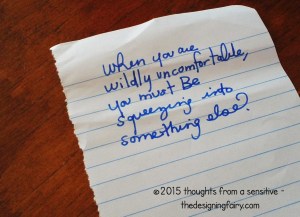 When you are
wildly uncomfortable,
you must Be
squeezing into
something else?
©2015 thoughts from a sensitive -
thedesigningfairy.com